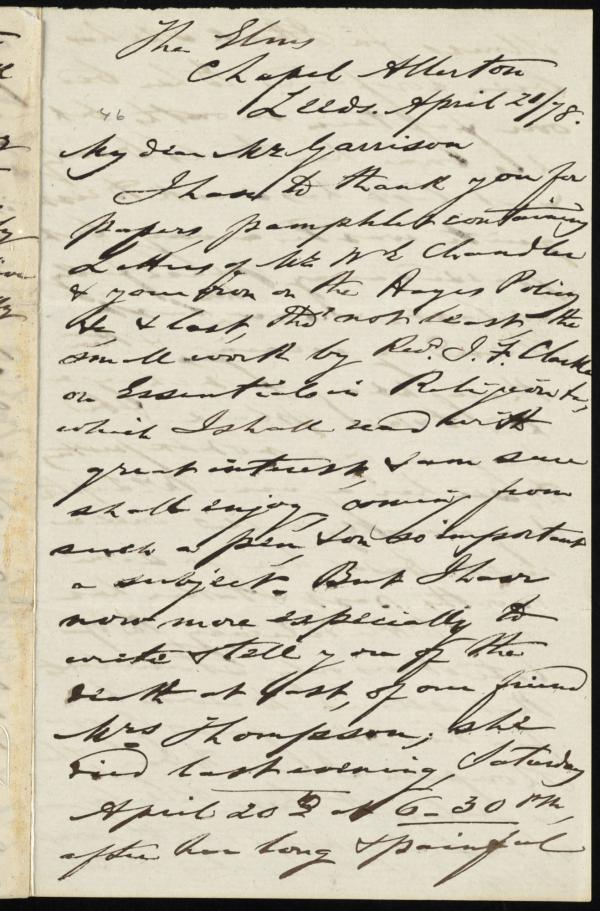 The Elms
Chapel Allerton
Leeds. April 21/78.
46
My dear Mr Garrison
I have to thank you for
papers, pamphlet containing
Letters of Mr W E Chandler
& your son on the Hayes Policy
&c & last, tho' not least, the
small work by Revd. J. F. Clarke
on Essentials in Religion &c,
which I shall read with
great interest, & am sure
shall enjoy, coming from
such a pen, & on so important
a subject. But I have
now more especially to
write & tell you of the
death at last, of our friend
Mrs Thompson; she
died last evening, Saturday
April 20th at 6-30 PM,
after her long & painful